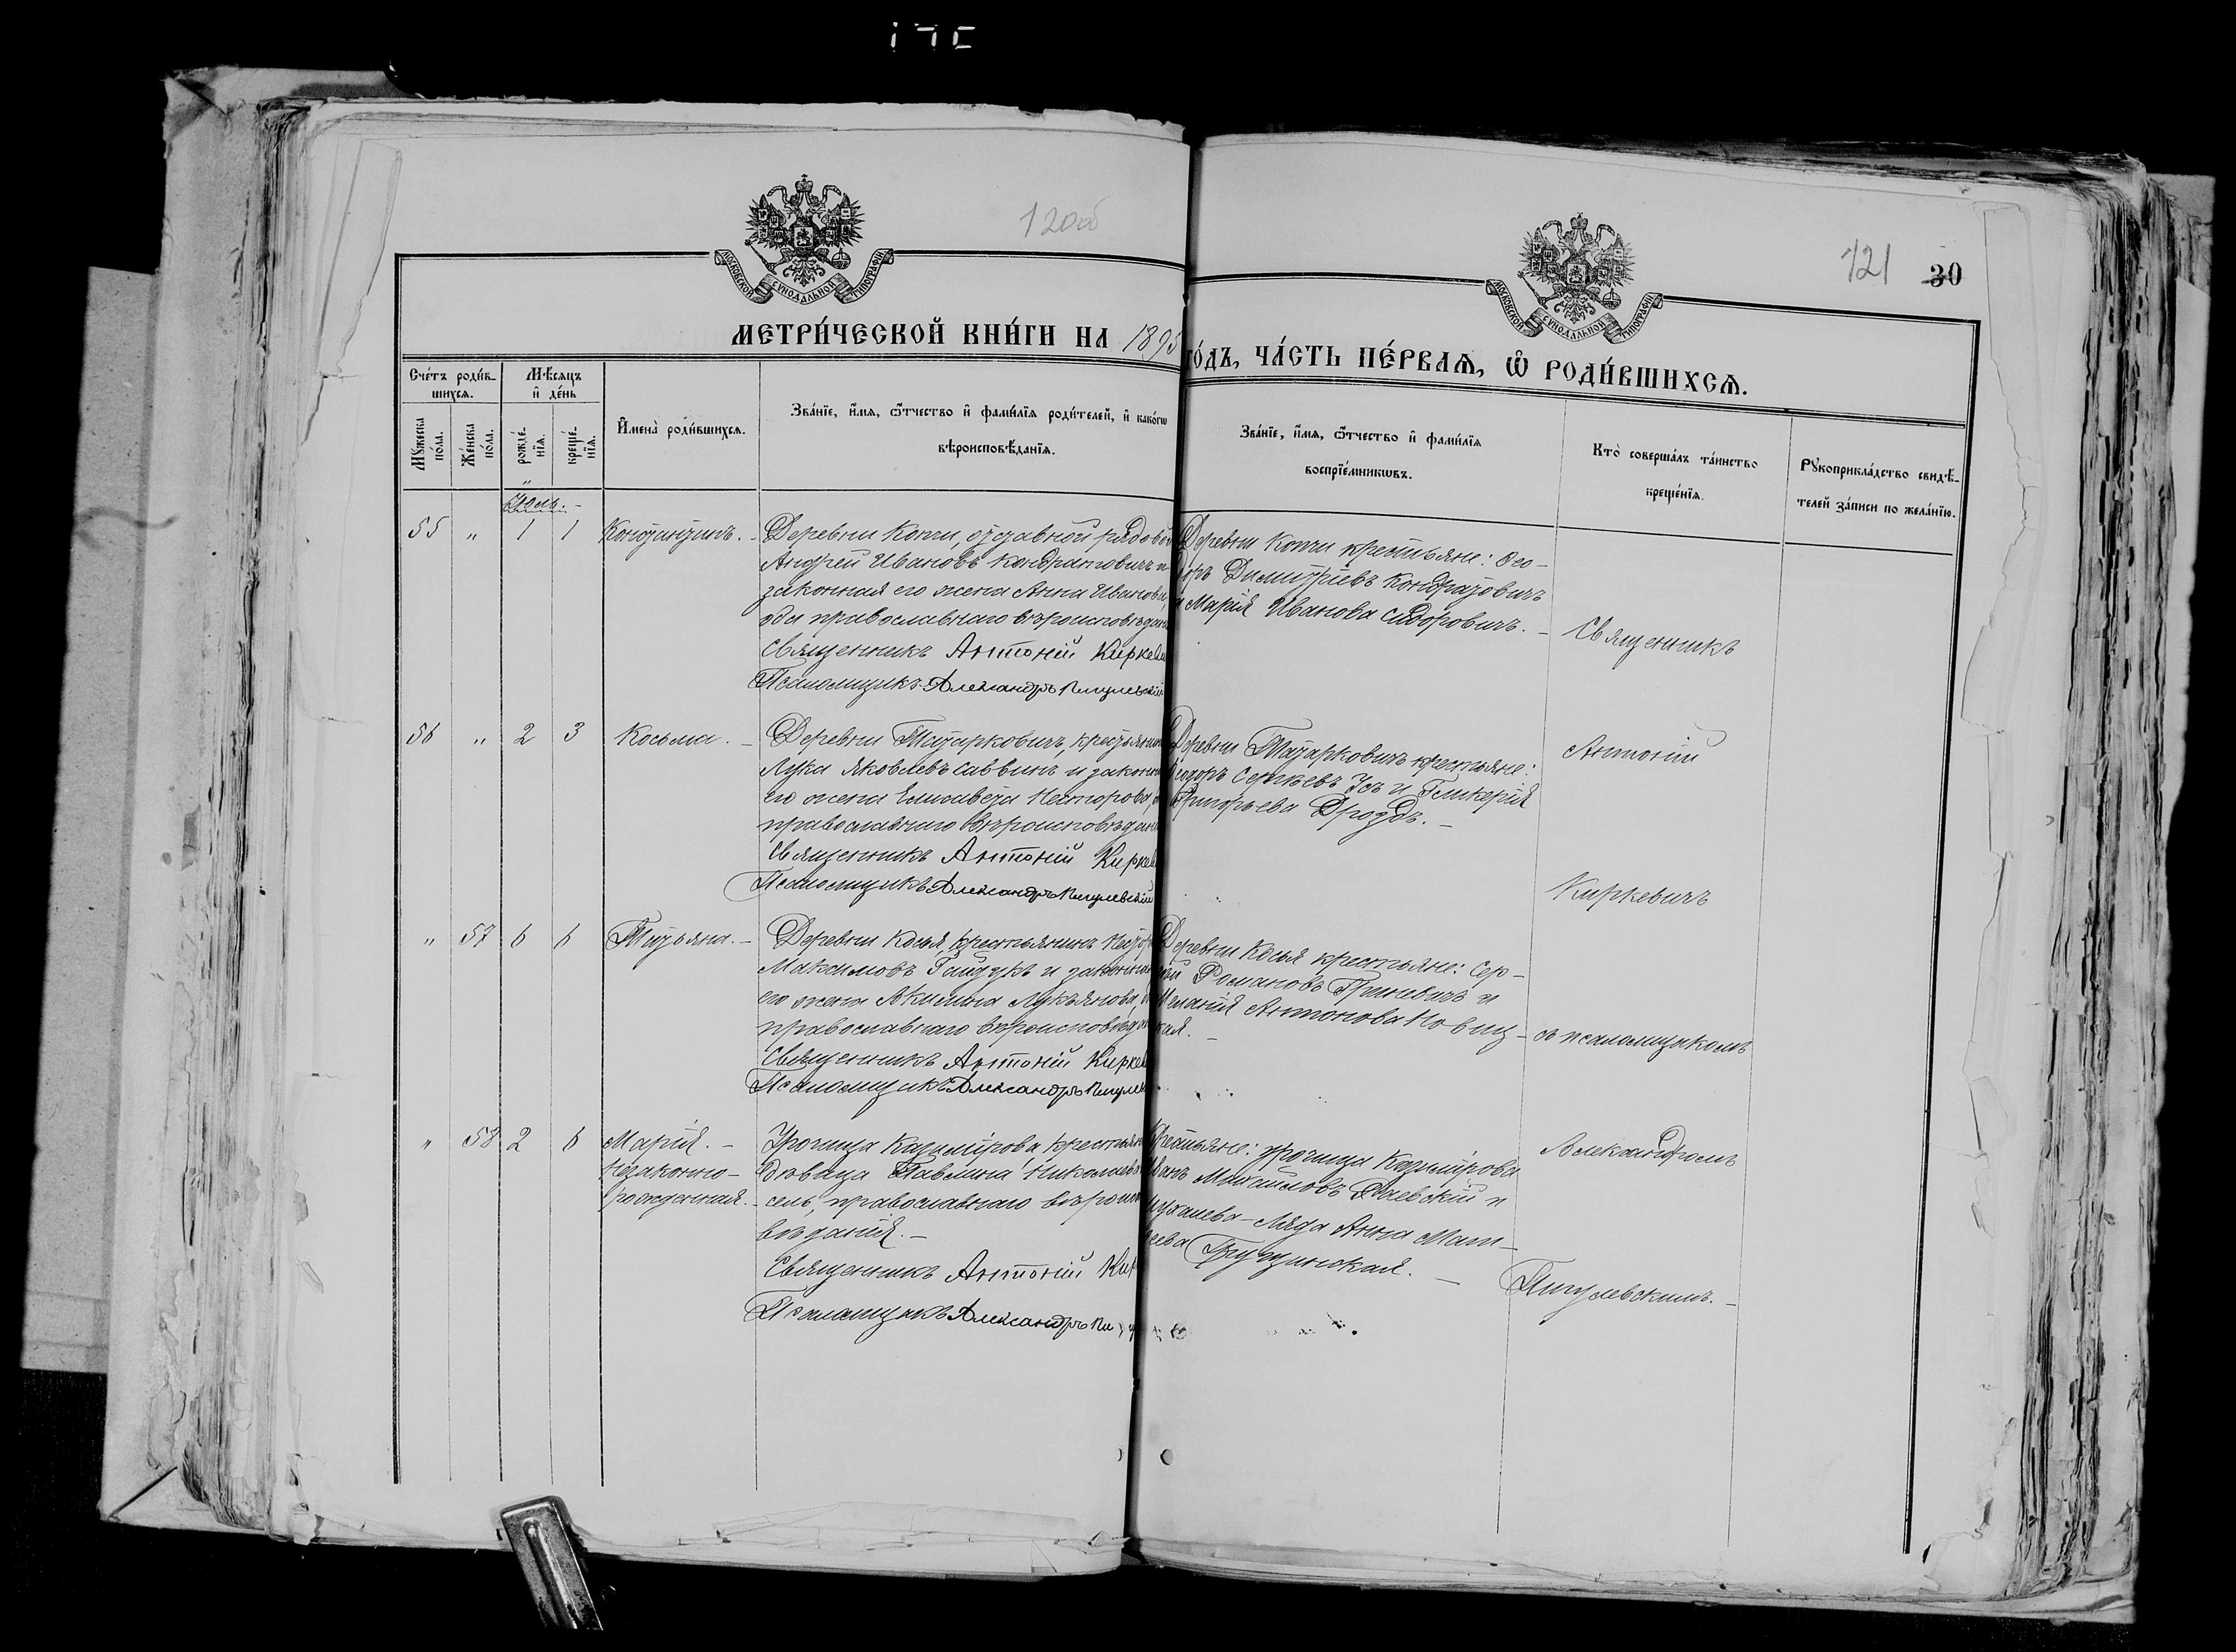 120об
121 30
МОСКОВСКОЙ СѴНОДАЛЬНОЙ ТИПОГРАФІИ
МОСКОВСКОЙ СѴНОДАЛЬНОЙ ТИПОГРАФІИ
МЕТРИ́ЧЕСКОЙ КНИ́ГИ НА 1895
ГО́ДЪ, ЧА́СТЬ ПЕ́РВАѦ, Ѽ РОДИ́ВШИХСѦ.
Сче́тъ роди́в-
шихсѧ.
Мѣ́сѧцъ
и҆ де́нь
Мꙋ́жеска
по́ла.
Же́нска
по́ла.
рожде́-
нїѧ.
креще́-
нїѧ.
И҆мена̀ роди́вшихсѧ.
Зва́нїе, и҆́мѧ, ѻ҆́тчество и҆ фами́лїѧ роди́телей, и҆ како́гѡ
вѣроисповѣ́данїѧ.
Зва́нїе, и҆́мѧ, ѻ҆́тчество и҆ фами́лїѧ
воспрїе́мникѡвъ.
Кто̀ соверша́лъ та́инство
креще́нїѧ.
Рꙋкоприкла́дство свидѣ́-
телей за́писи по жела́нїю.
55 " 1 1 Константинъ. - Деревни Копчи, отставной рядовой
Андрей Ивановъ Кондратовичъ и
законная его жена Анна Иванова,
оба православнаго вѣроисповѣдан
Священникъ Антоній Кирке
Псаломщикъ Александръ Пигулевскій
Деревни Копчи крестьяне: Ѳео-
доръ Димитріевъ Кондратовичъ
и Марія Иванова Сидоровичъ. -
Священникъ
56 " 2 3 Косьма. - Деревни Татарковичъ, крестьянинъ
Лука Яковлевъ Саввинъ и законная
его жена Елисавета Несторова,
православнаго вѣроисповѣдан
Священникъ Антоній Кирке
Псаломщикъ Александръ Пигулевскій
Деревни Татарковичъ крестьяне:
Ѳеодоръ Сергѣевъ Усъ и Гликерія
Григорьева Дроздъ. -
Антоній
Киркевичъ
" 57 6 6 Татьяна. - Деревни Косья, крестьянинъ Нестор
Максимовъ Гайдукъ и законная
его жена Акилина Лукьянова,
православнаго вѣроисповѣдан
Священникъ Антоній Кирке
Псаломщикъ Александръ Пигулев
Деревни Косья крестьяне: Сер-
гѣй Романовъ Гриневичъ и
Меланія Антонова Новиц-
кая. -
съ псаломщикомъ
" 58 2 6 Марія. -
незаконно-
рожденная. -
Урочища Казимірова крестьян
дѣвица Павлина Николаева
сель, православнаго вѣроиспо
вѣданія. -
Священникъ Антоній Кир
Псаломщикъ Александръ Пи
Крестьяне: урочища Казимірова
Иванъ Михайловъ Раевскій и
Анна Мат-
ѳеева
Александромъ
Пигулевскимъ. -